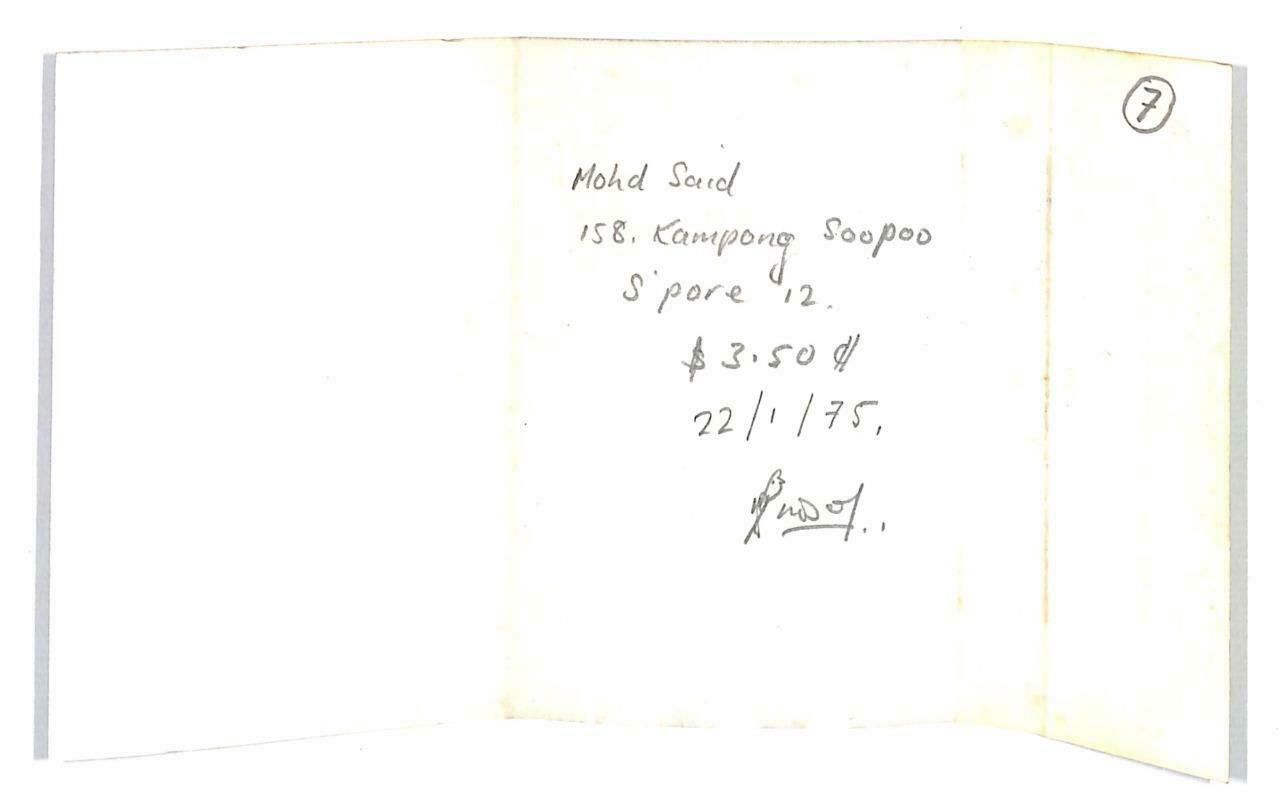 7
Mohd Said
158. Kampong Soopoo
S'pore 12.
$3.50 ¢
22/1/75.